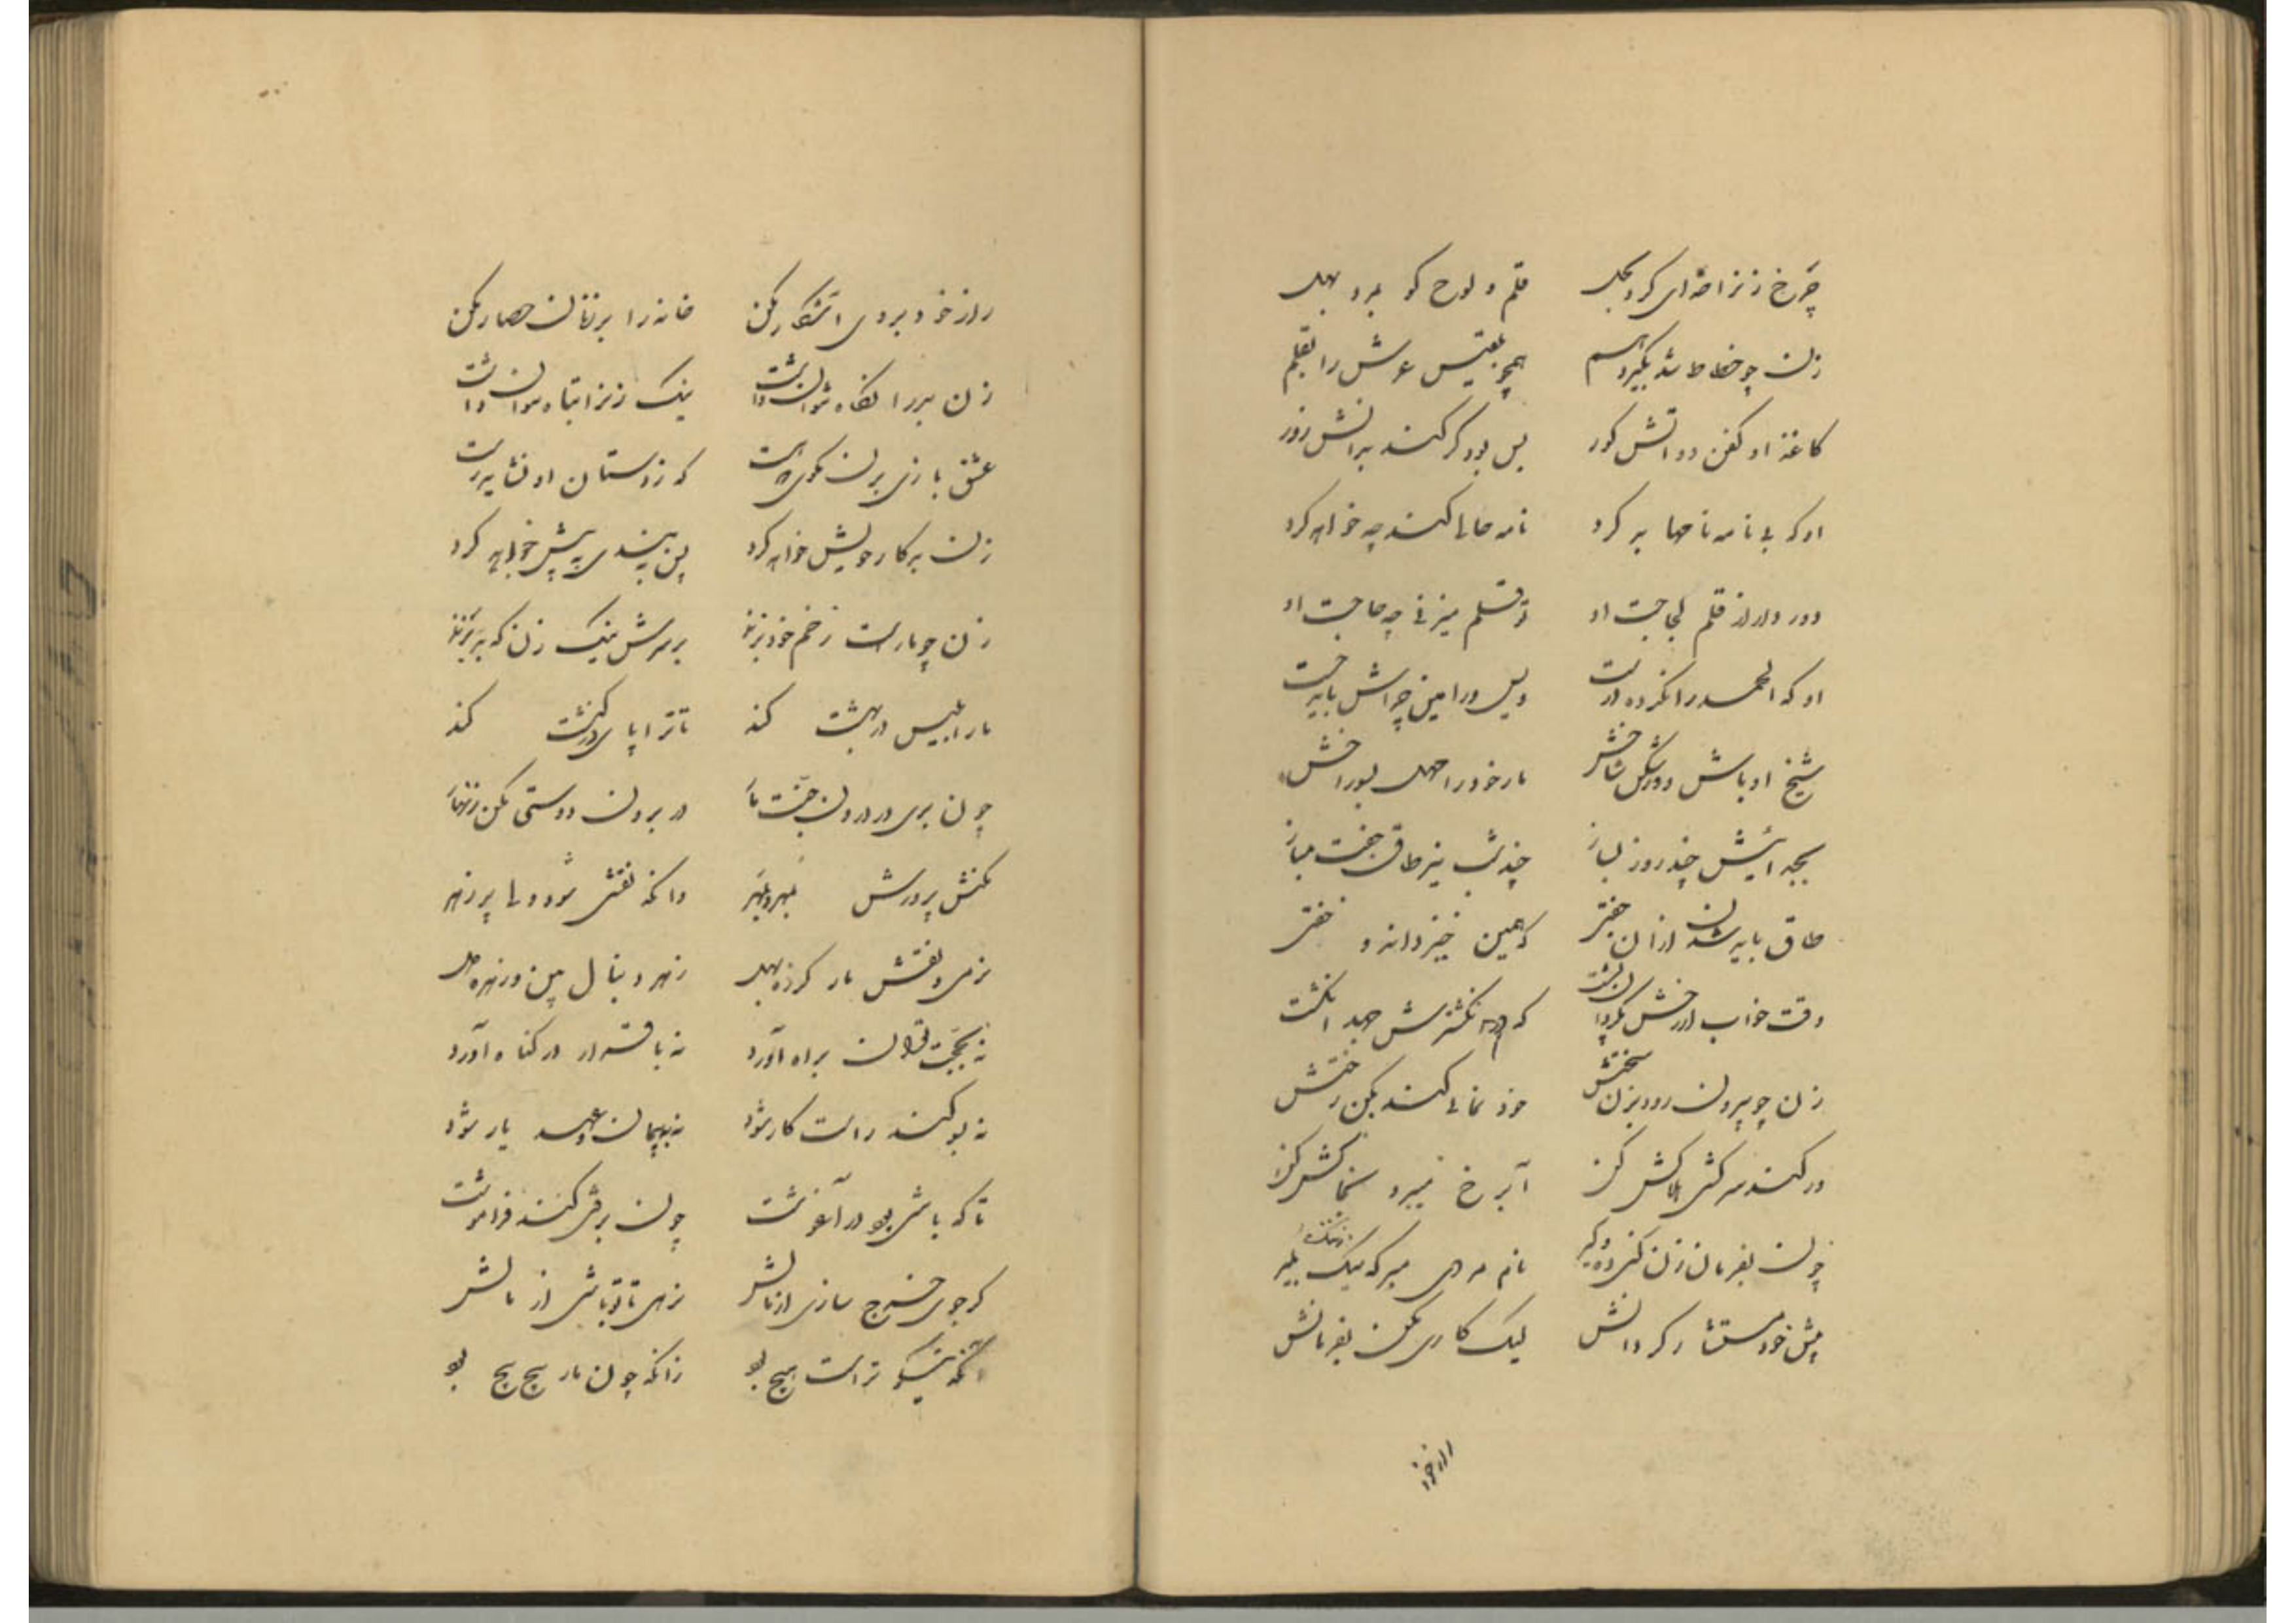 چرخ زنرا خدای کرد بحل قلم و لوح کو بمرد بهل
زن چو خطاط شد بگیرد هم همچو بلقیس عرش را بقلم
کاغذ او کفن دواتش کور بس بود گر کند بدانش زور
او که بی نامه نامها بد کرد نامه خالی کند چه خواهد کرد
دور دار از قلم لجاجت او تو قلم میزنی چه حاجت او
او که الحمد را نکرده درست ویس و رامین چراش باید جست
شیخ او باش و دور شکل شاخش مار خود را مهل بسوراخش
بجدائیش چند روز بساز چند شب نیز طاق و جفت مباز
طاق باید شدن از آن جفتی که همین خیزد از و خفتی
وقت خواب از درخش نگردان پشت که در انگشترش جهد انگشت
زن چو بیرون رود بزن سختش خود نمائی کند بکن رختش
ور کند سرکشی هلاکش کن آب رخ میبرد بخاکش کن
چون بفرمان زن کنی ده و گیر نام مردی مبر که ننگ بمیر
پیش خود مستشار گردانش لیک کاری مکن بفرمانش
راز خود بر وی آشکار مکن خانه را بر زنان حصار مکن
زن بد را نگاه نتوان داشت نیک زنرا تباه نتوان داشت
عشق بازی بدان نکوی پرست که ز دستان او نشاید رست
زن بد کار خویش خواهد کرد پس ببندی ز پیش خواهد کرد
زن چو مار است زخم خود بزند بر سرش نیک زن که بد بزند
مار ابلیس در بهشت کند تا ترا پای در کنشت کند
چون بری در درون جنت مار در برون دوستی مکن زنهار
مکنش پرورش بمهر و بقهر وانکه نفسی شود ولی پر زهر
نرمی و نقش مار کرزه بهل زهر و دنبال بین و زهره مهل
نه بحجت توان براه آورد نه باقرار در کناه آورد
نه بسوکند راست کار شود نه به پیمان و عهد یار شود
تا که باشی بود در آغوشت چون برفتی کند فراموشت
کر جوی خرج سازی از مالش نرهی تا تو باشی از نالش
آنکه نیکو تر است هیچ بود زانکه چون مار پیچ پیچ بود